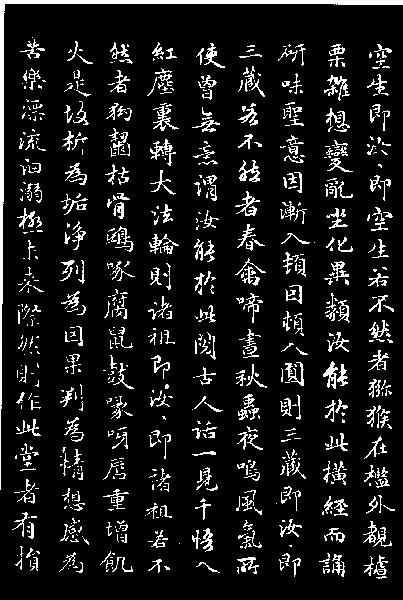 空生即汝、即空生若不然者猕猴在檻外覷樝
栗雜想變亂坐化異類汝能於此橫經而誦
研味聖意因漸入頓因頓入圓則三藏即汝、即
三藏若不然者春禽啼晝秋蟲夜鳴風氣所
使曾無意謂汝能於此閱古人話一見千悟入
紅塵裏轉大法輪則諸祖即汝、即諸祖若不
然者狗齧枯骨鴟啄腐鼠鼓喙呀脣重增飢
火是故析為垢淨列為因果判為情想感為
苦樂漂流汩溺極未来際然則作此堂者有損